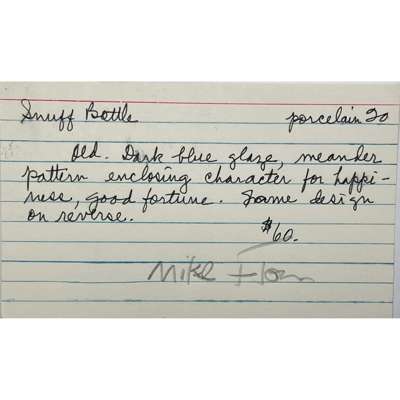 Snuff Bottle porcelain 20
Old. Dark blue glaze, meander
pattern enclosing character for happi-
ness, good fortune. Same design
on reverse.
$60.
Mike